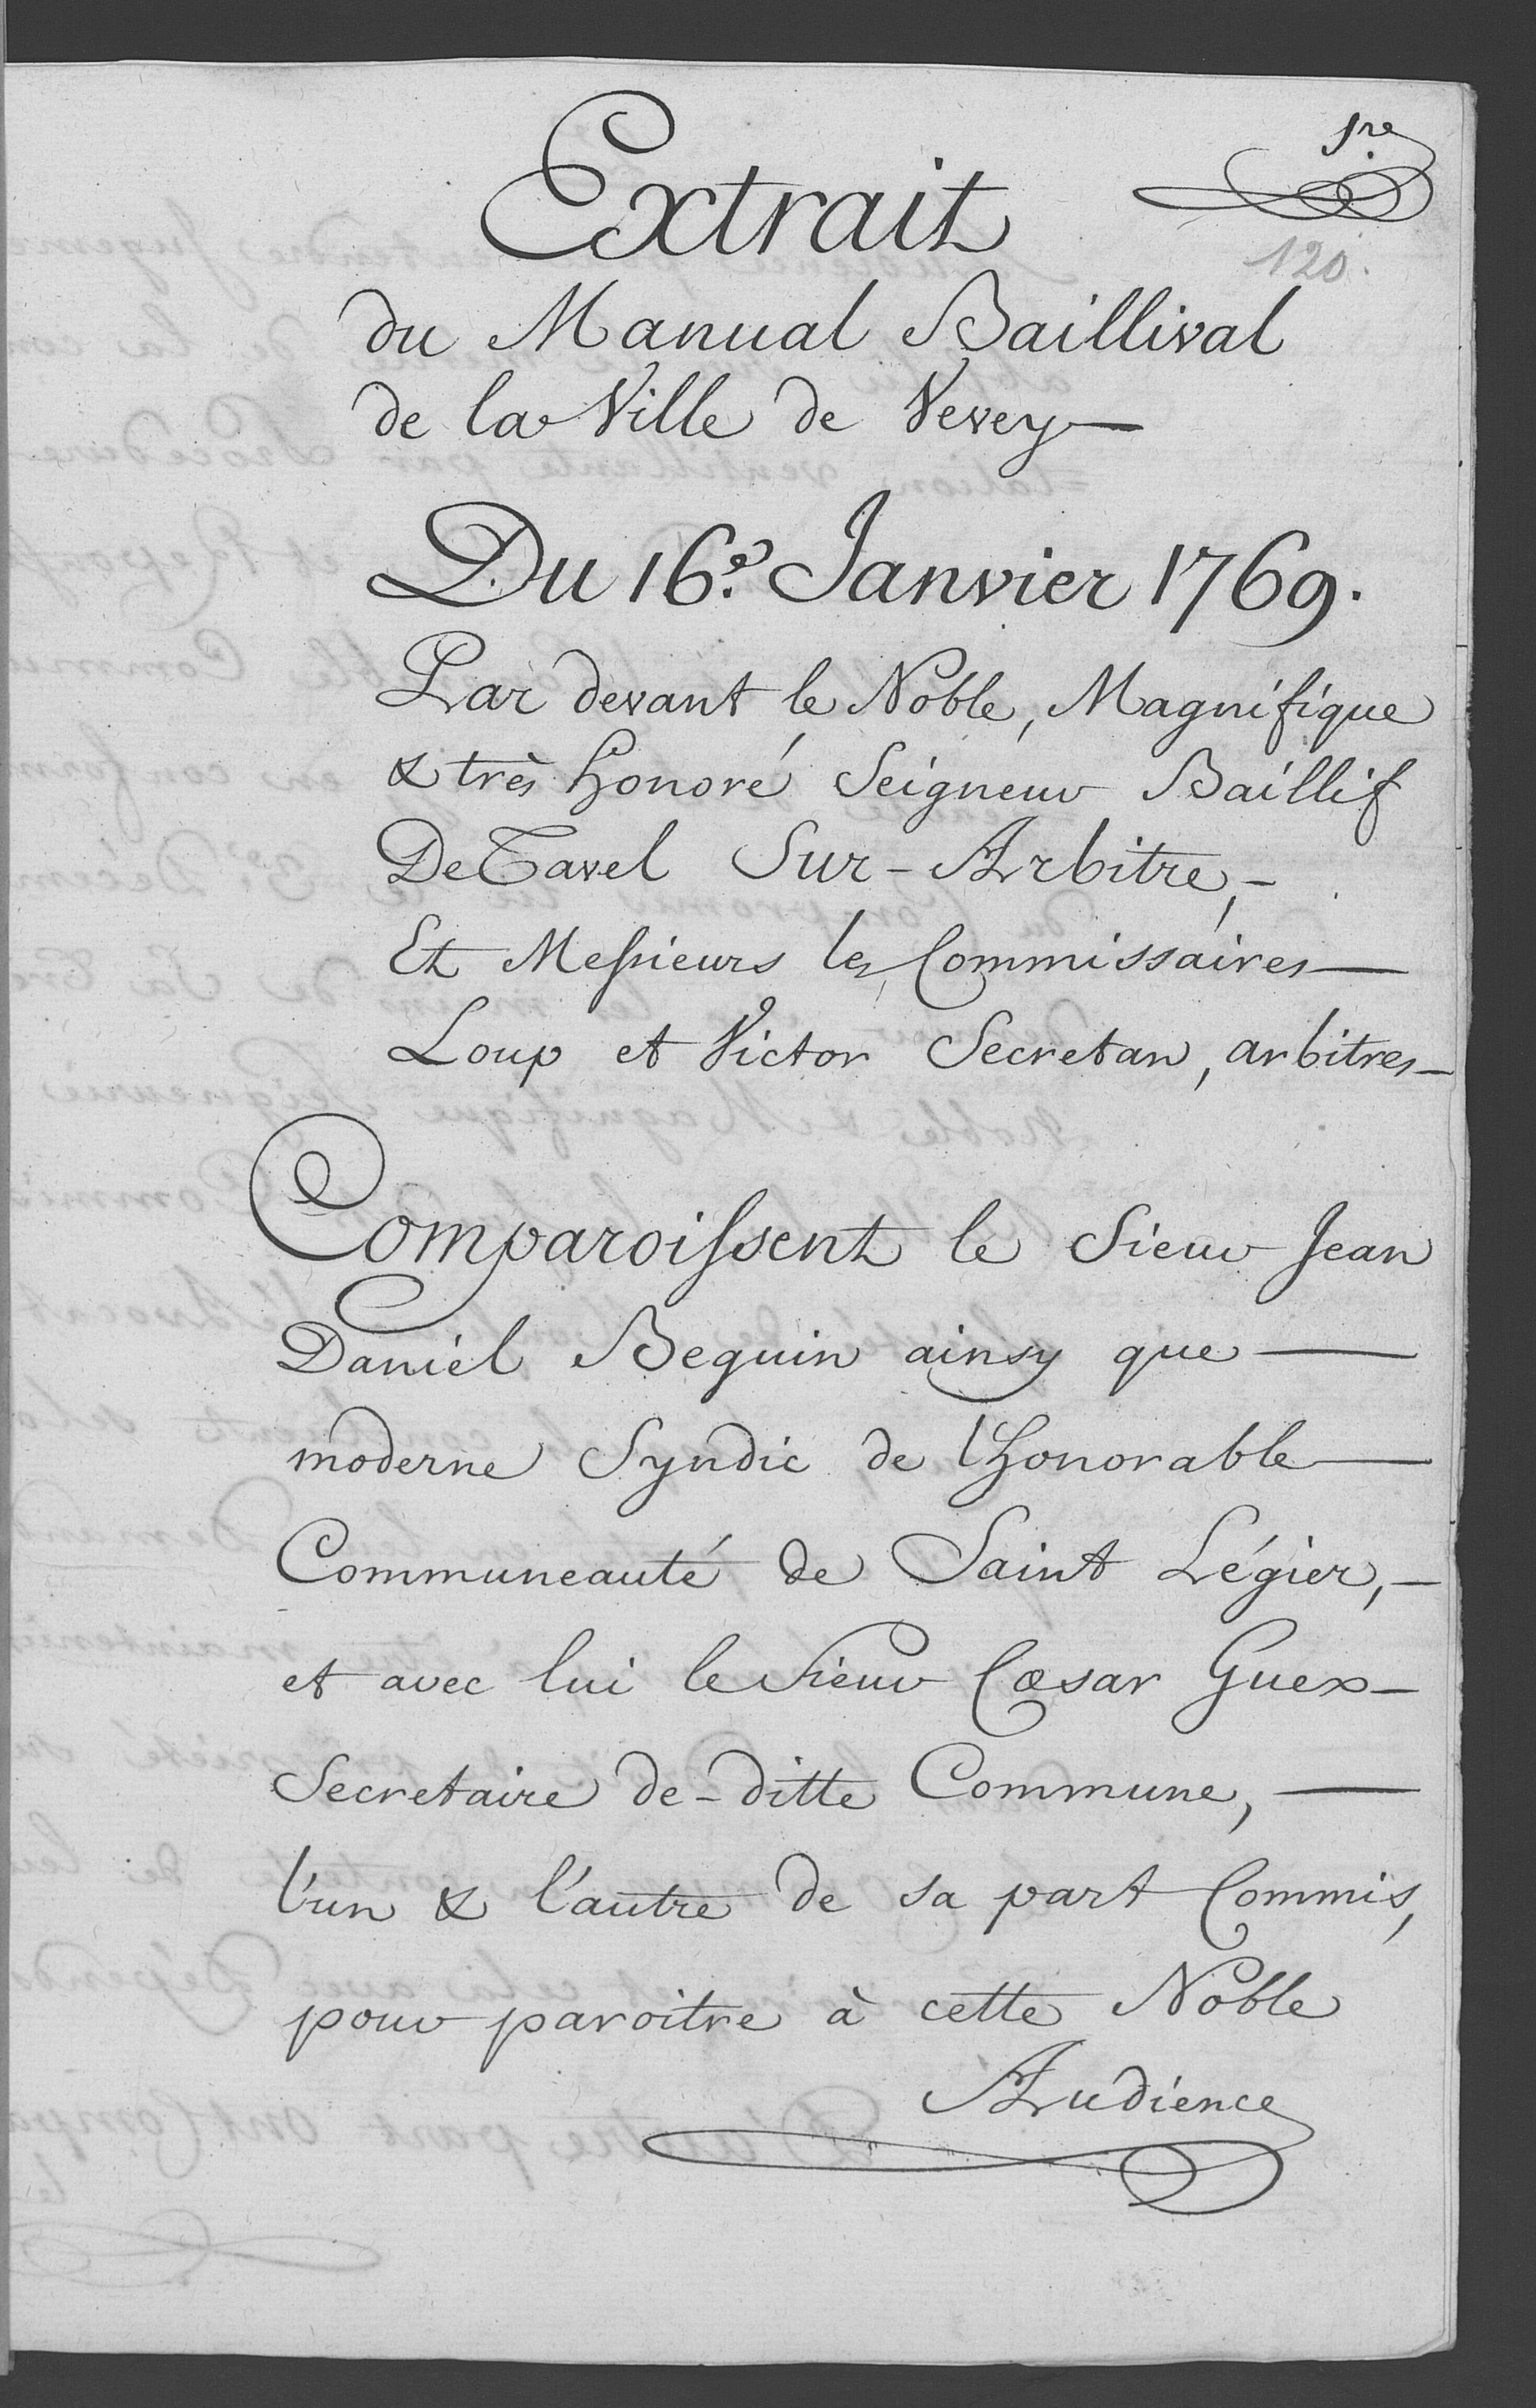 1re
Extrait
120.
du Manual Baillival
de la Ville de Vevey —
Du 16e. Janvier 1769.
Par devant le Noble, Magnifique
& très honoré Seigneur Baillif
De Tavel Sur-Arbitre, -
Et Messieurs les Commissaires —
Loup et Victor Secretan, arbitres —
Comparoissent le Sieur Jean
Daniel Beguin ainsy que —
moderne Syndic de lhonorable —
Communeauté de Saint Légier, —
et avec lui le Sieur Cæsar Guex —
Secretaire de-ditte Commune, —
l'un & l'autre de sa part Commis,
pour paroitre à cette Noble
Audience